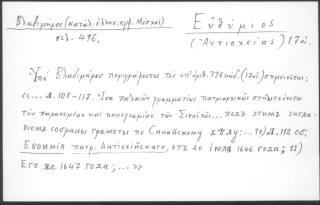 Βλαδιμήρου (Κατάλ. ἑλλην. χφφ. Μόσχας)
σελ. 496.
Εὐθύμιος
(Ἀντιοχείας) 17 αἰ.
Ὑπὸ Βλαδιμήρου περιγράφονται τὸν ὑπ' ἀριθ. 336 κώδ. (17 αἰ.) σημειοῦνται:
«... Л. 107-117. Ἕνα παλαιὸν γραμμάτιον πατριαρχικὸν στηλιτεύοντα
τὴν παρανομίαν καὶ κακογνωμίαν τῶν Σιναϊτῶν... подъ этимъ загла-
віемъ собраны грамоты по Синайскому дѣлу; ... 10) Л. 112 об.
Евѳимія патр. Антіохійскаго, отъ 20 іюля 1646 года; 11)
Его же 1647 года; ... »